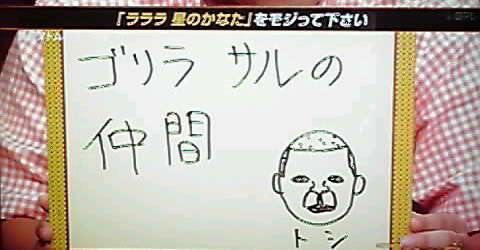 「ラララ 星のかなた」をモジって下さい
ゴリラ サルの
仲間
トシ